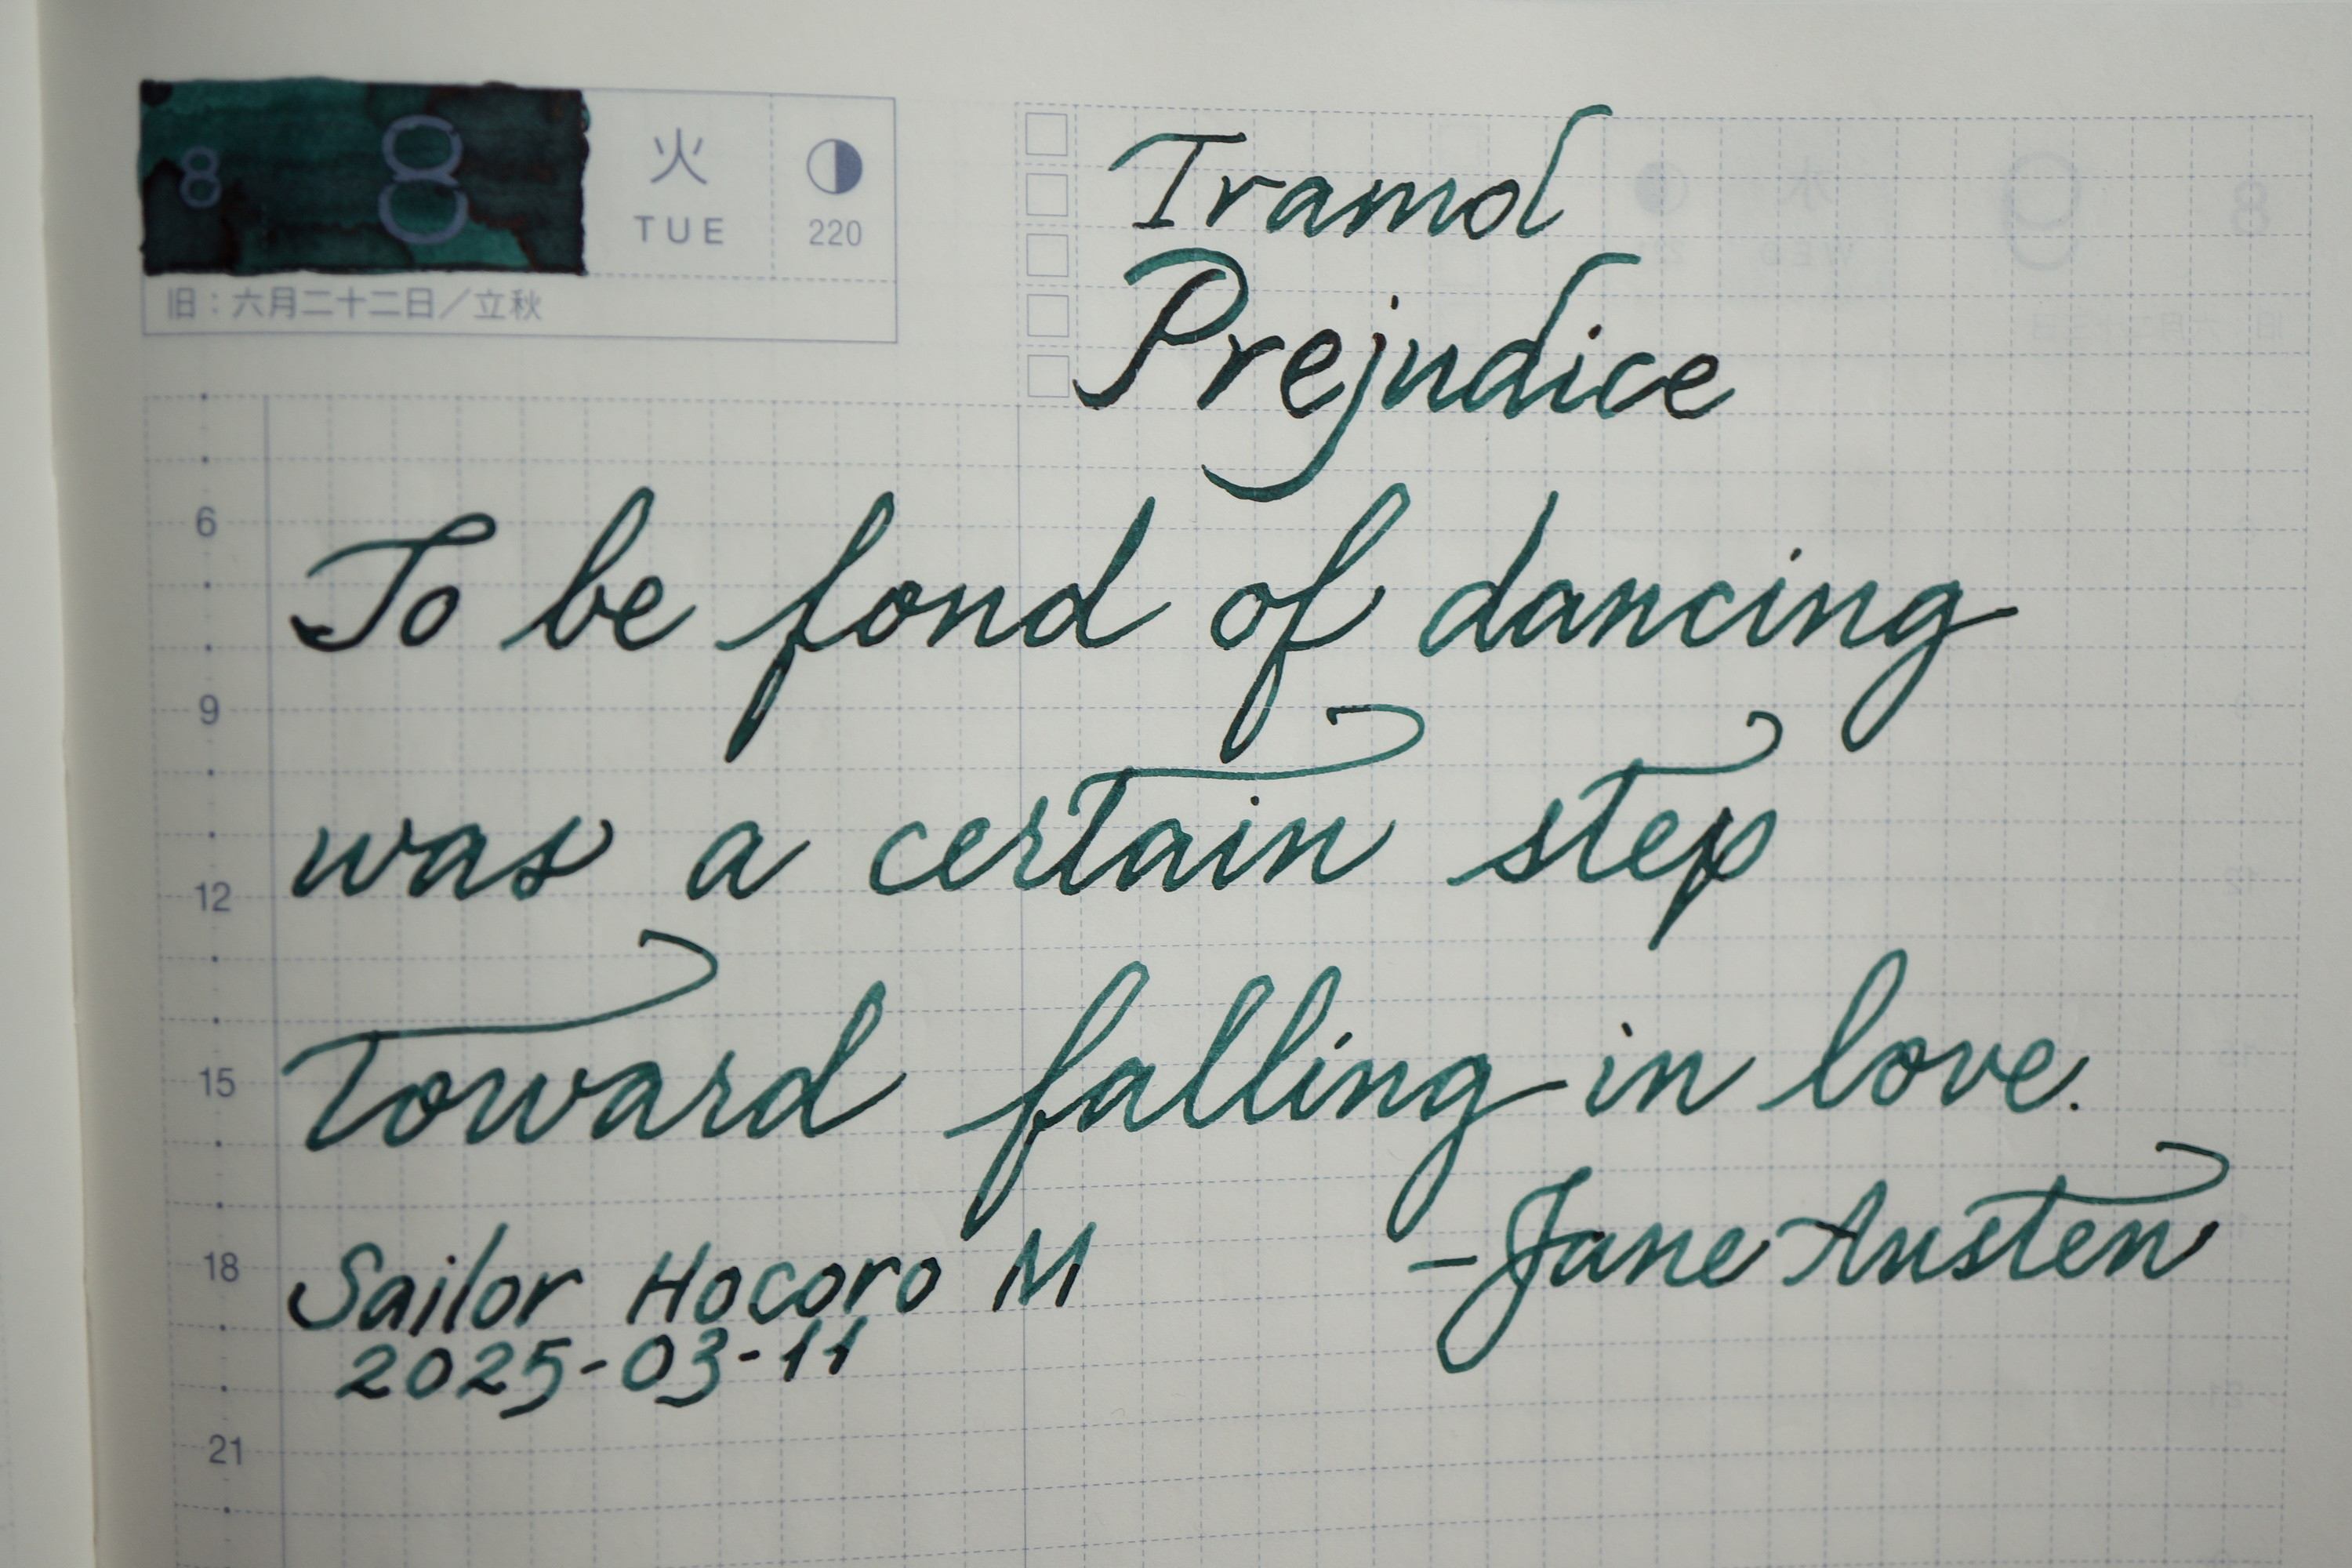 8 8 火 TUE 220
旧：六月二十二日／立秋
Iramol
Prejudice
6
To be fond of dancing
9
was a certain step
12
toward falling in love.
15
-Jane Austen
18
Sailor Hocoro M
2025-03-11
21